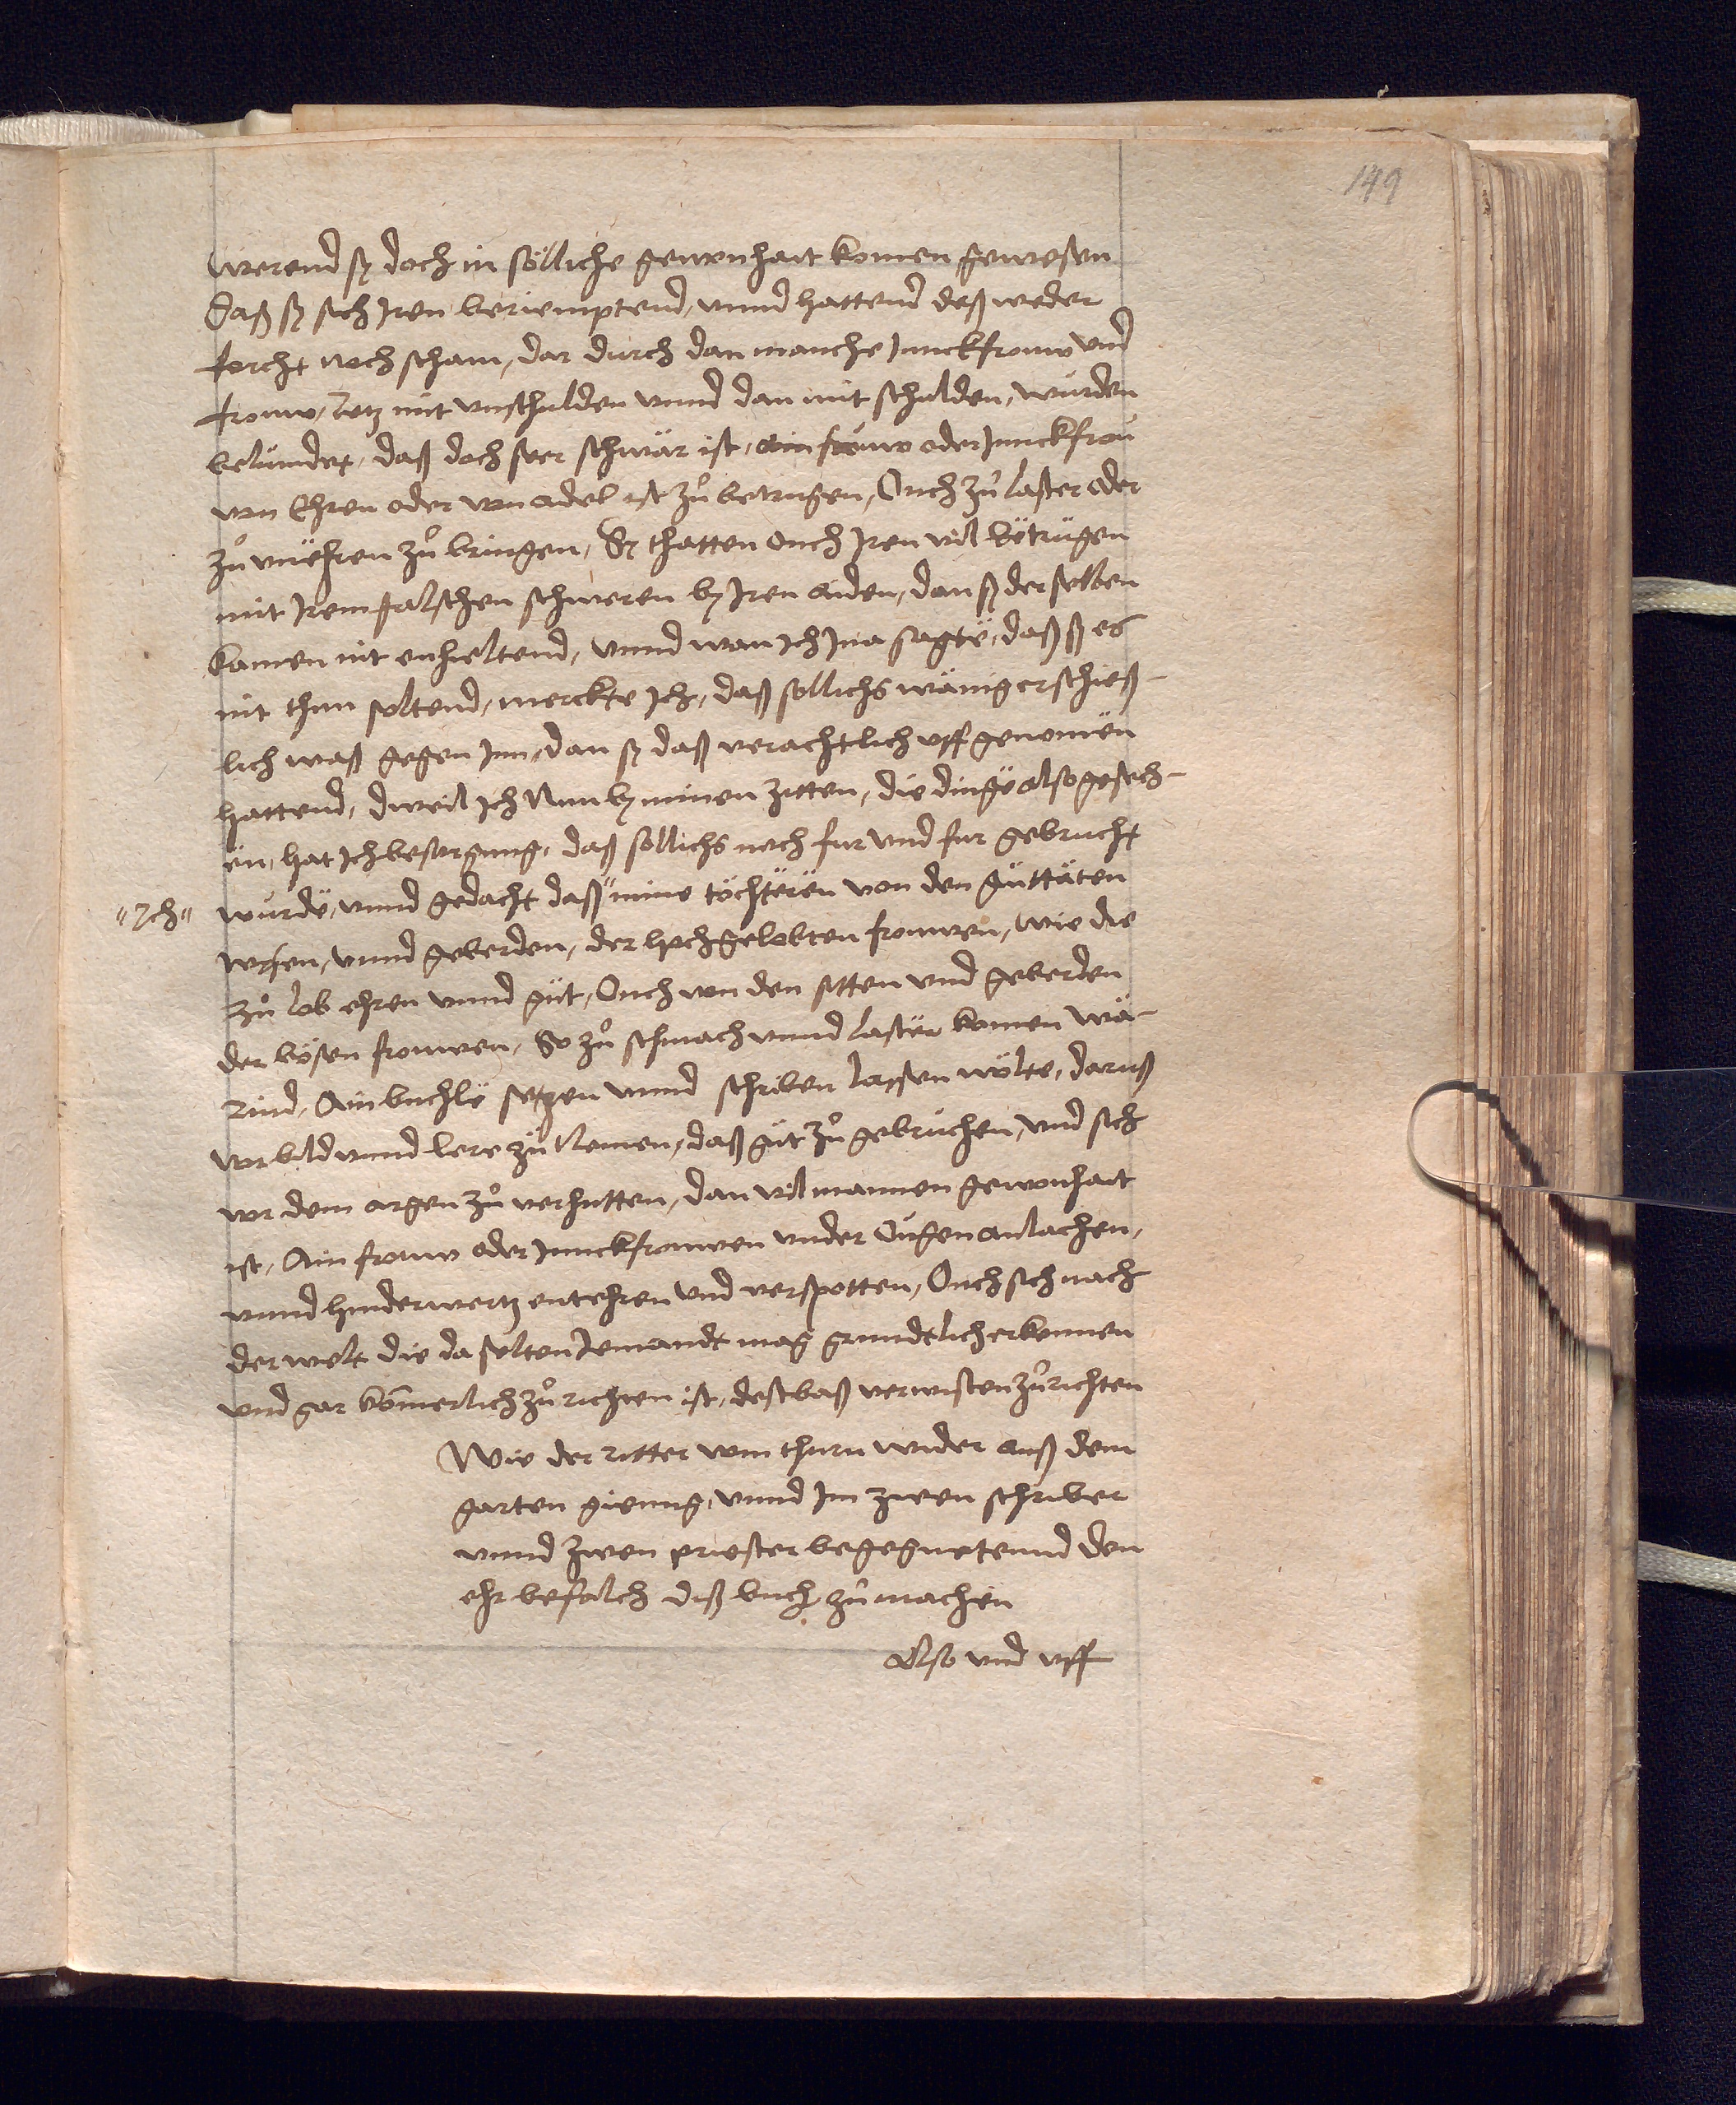 149
werend sy doch in sölliche gewonhait komen gewesen
Daß sy sich Iren beriemptend, vnnd hattend deß weder
forcht noch scham, dar durch dan manche Junckfrouw vnd
frouw, Jetz mit vnschulden vnnd dan mit schulden, wurden
belümdet, daß doch seer schwär ist, ain frouw oder Junckfrou
von Ehren oder von adel ist zů betrugen, Ouch zů laster oder
zů vnehren zů bringen, Sy thatten ouch Iren vil betrügen
mit Irem falschen schweren by Iren aiden, dan sy der selben
kainen nit enhieltend, vnnd wan Ich Ina sagte, daß sy es
nit thun soltend, merckte Ich, daß sollichs wänig erschieß-
lich waß gegen Inn, dan sy daß verachtlich vff genomen
hattend, dweil Ich Nun by minen zitten, die dinge also gesech-
en, hat Ich besorgung, daß söllichs noch fur vnd fur gebrucht
"Ich" wurde, vnnd gedacht daß " mine töchteren von den guttäten
wesen, vnnd geberden, der hochgelobten frouwen, wie die
zů lob ehren vnnd gůt, Ouch von den sitten vnd geberden
der bösen frouwen, So zů schmach vnnd laster komen wä-
rind, Ain buchle setzen vnnd schriben lassen wölte, daruß
vorbild vnnd lere zů Nemen, daß gůt zů gebruchen, vnd sich
vor dem argen zů verhutten, dan vil mannen gewonhait
ist, Ain frouw oder Junckfrouwen vnder Ougen anlachen,
vnnd hinderwertz entehren vnd verspotten, Ouch sich nach
der welt die da selten Jemandt mag grundtlich erkennen
vnd gar kömerlich zů richten ist, dest baß verwisten zů richten
Wie der ritter vom thurn wider auß dem
garten gienng, vnnd Im zwen schriber
vnnd zwen priester begegnetennd den
ehr befalch diß buch zů machen
Also vnd vff